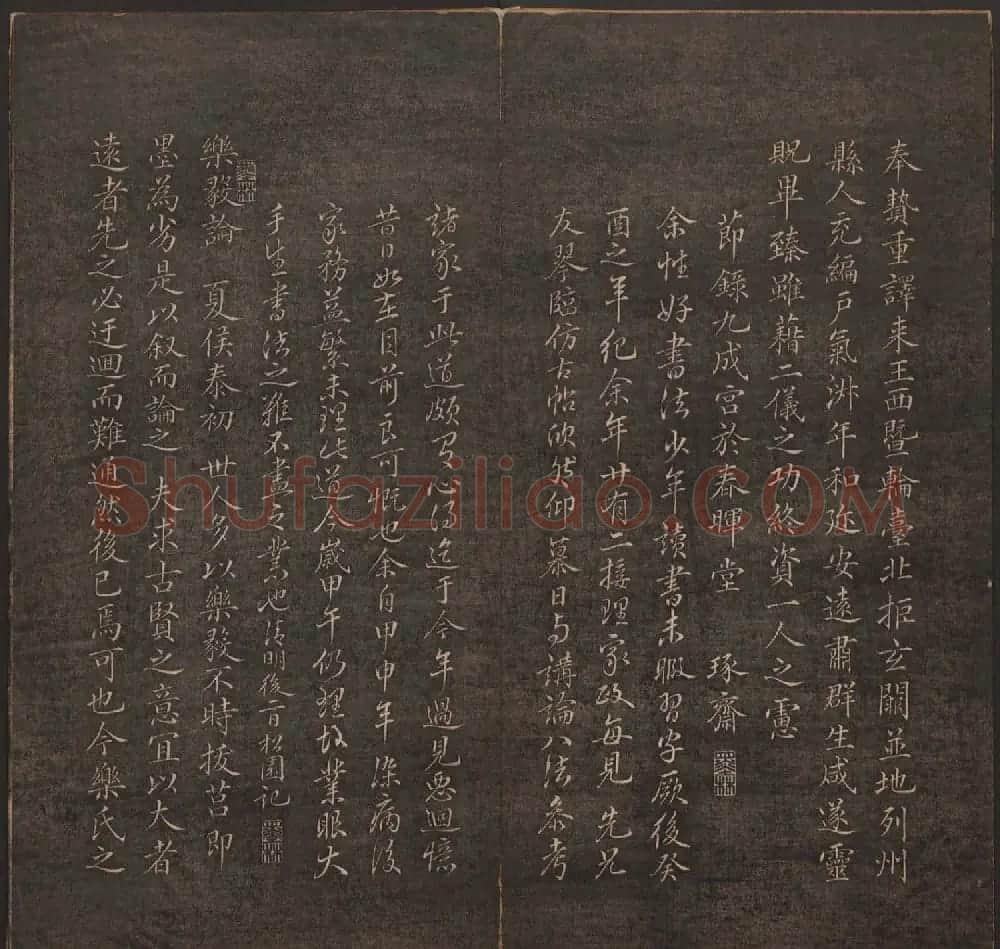 奉贄重譯来王西暨輪臺北拒玄闕並地列州
縣人充編戸氣淋年和迩安遠肅群生咸遂靈
貺畢臻雖藉二儀之功終資一人之慮
節錄九成宮於春暉堂 琢齋
余性好書法少年讀書未暇習字厥後癸
酉之年纪余年廿有二接理家政每見先兄
友琴臨仿古帖欣然仰慕日与講論八法叅考
諸家于此道頗有心得迄于今年過見惡迴憶
昔日如在目前良可慨也余自甲申年染病後
家務益繁未理此道今歲甲午仍理故業眼大
手生書法之難不盡專業也清明後一日松園記
樂毅論 夏侯泰初 世人多以樂毅不時拔莒即
墨為劣是以叙而論之 夫求古賢之意宜以大者
遠者先之必迂迴而難通然後已焉可也今樂氏之
Shufaziliao.COM